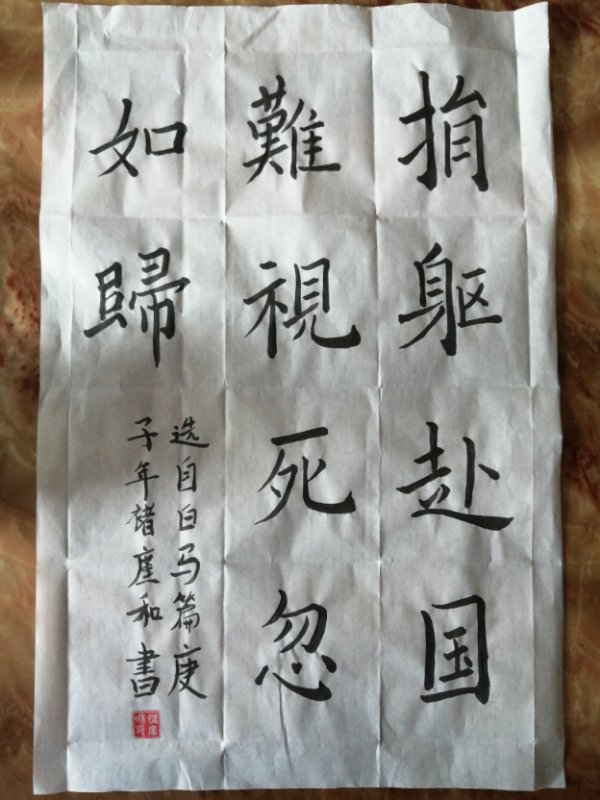 捐躯赴国
難視死忽
如歸
选自白马篇庚
子年褚庭和書